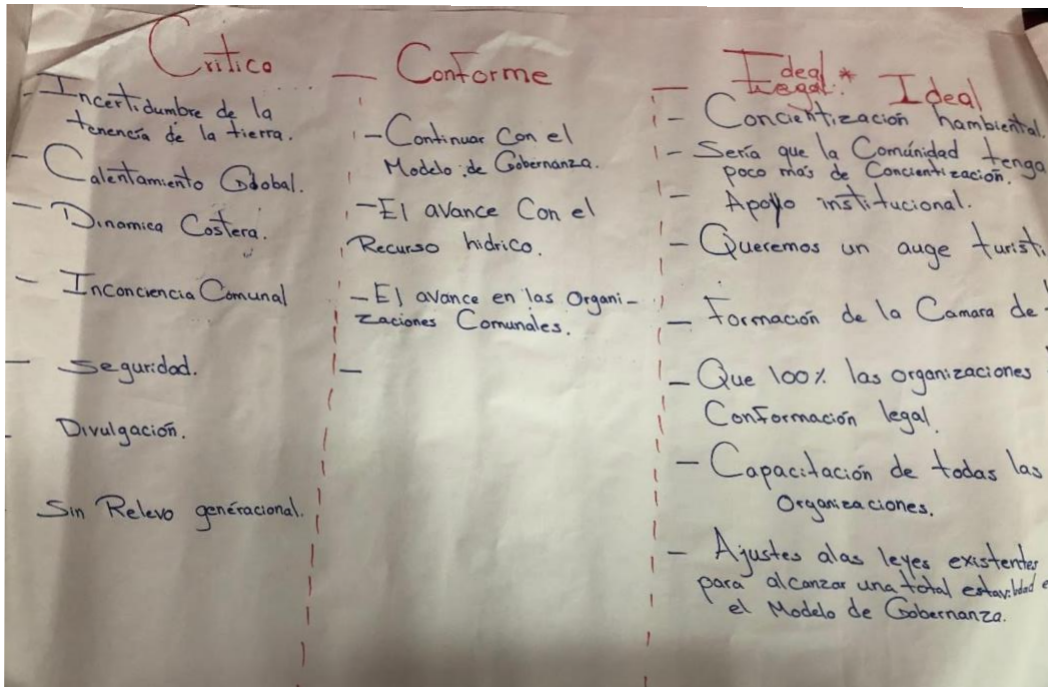 Critico
- Incertidumbre de la
tenencía de la tierra.
- Calentamiento Global.
- Dinamica Costera.
- Inconciencia Comunal
- Seguridad.
- Divulgación.
- Sin Relevo generacional.
- Conforme
- Continuar Con el
Modelo de Gobernanza.
- El avance Con el
Recurso hidrico.
- El avance en las Organi-
zaciones Comunales.
-
- Ideal
Legal * Ideal
- Concientización hambiental.
- Sería que la Comúnidad tenga
poco más de Concientización.
- Apoyo institucional.
- Queremos un auge turisti
- Formación de la Camara de
- Que 100% las organizaciones
Conformación legal.
- Capacitación de todas las
Organizaciones.
- Ajustes alas leyes existentes
para alcanzar una total estavilidad e
el Modelo de Gobernanza.